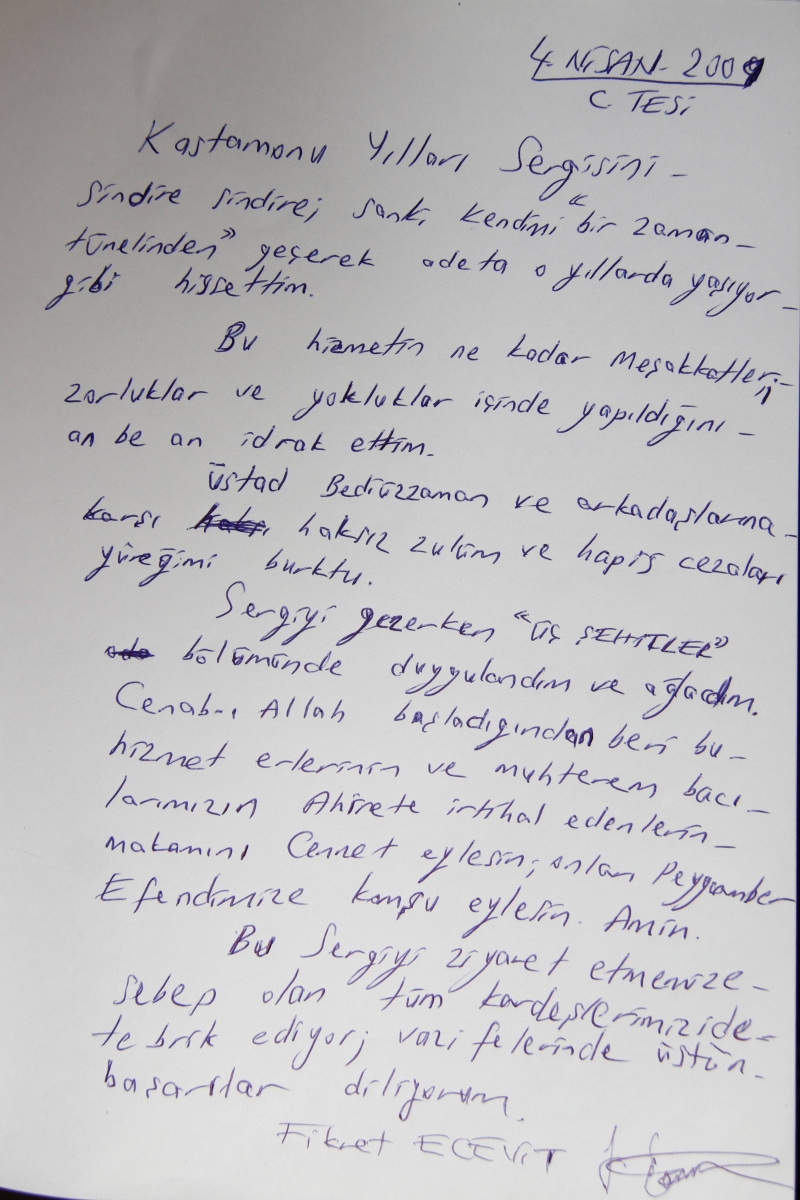 4 NİSAN - 2009
C. TESİ
Kastamonu Yılları Sergisini -
Sindire sindire; sanki kendimi "bir zaman -
tünelinden" geçerek adeta o yıllarda yaşıyor -
gibi hissettim.
Bu hizmetin ne kadar Meşakkatlerin
zorluklar ve yokluklar içinde yapıldığını -
an be an idrak ettim.
Üstad Bediüzzaman ve arkadaşlarına -
karşı haksız zulüm ve hapis cezaları
yüreğimi burktu.
Sergiyi gezerken "ÜÇ ŞEHİTLER"
bölümünde duygulandım ve ağladım.
Cenab-ı Allah başladığından beri bu -
hizmet erlerinin ve muhterem bacı -
larımızın Ahirete irtihal edenlerin -
makamını Cennet eylesin; onları Peygamber
Efendimize komşu eylesin. Amin.
Bu Sergiyi ziyaret etmemize -
sebep olan tüm kardeşlerimizide -
tebrik ediyor; vazifelerinde üstün -
başarılar diliyorum.
Fikret ECEVİT